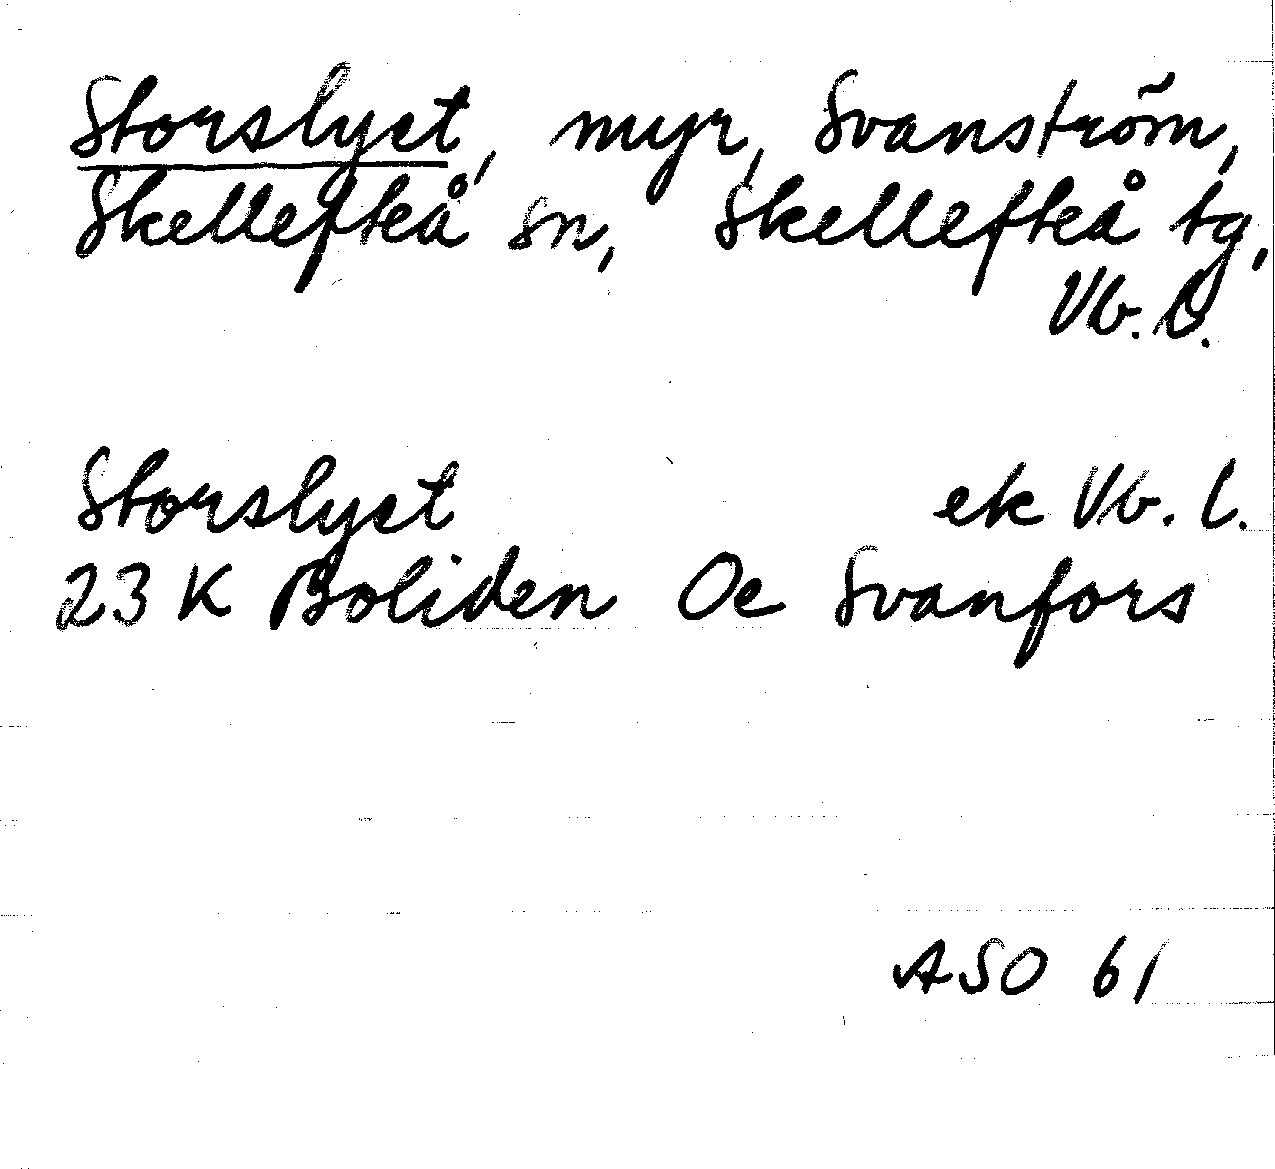 Storslyet, myr, Svanström,
Skellefteå sn, Skellefteå tg,
Vb. L.
Storslyet ek Vb. l.
23 K Boliden Oe Svanfors
ASO 61